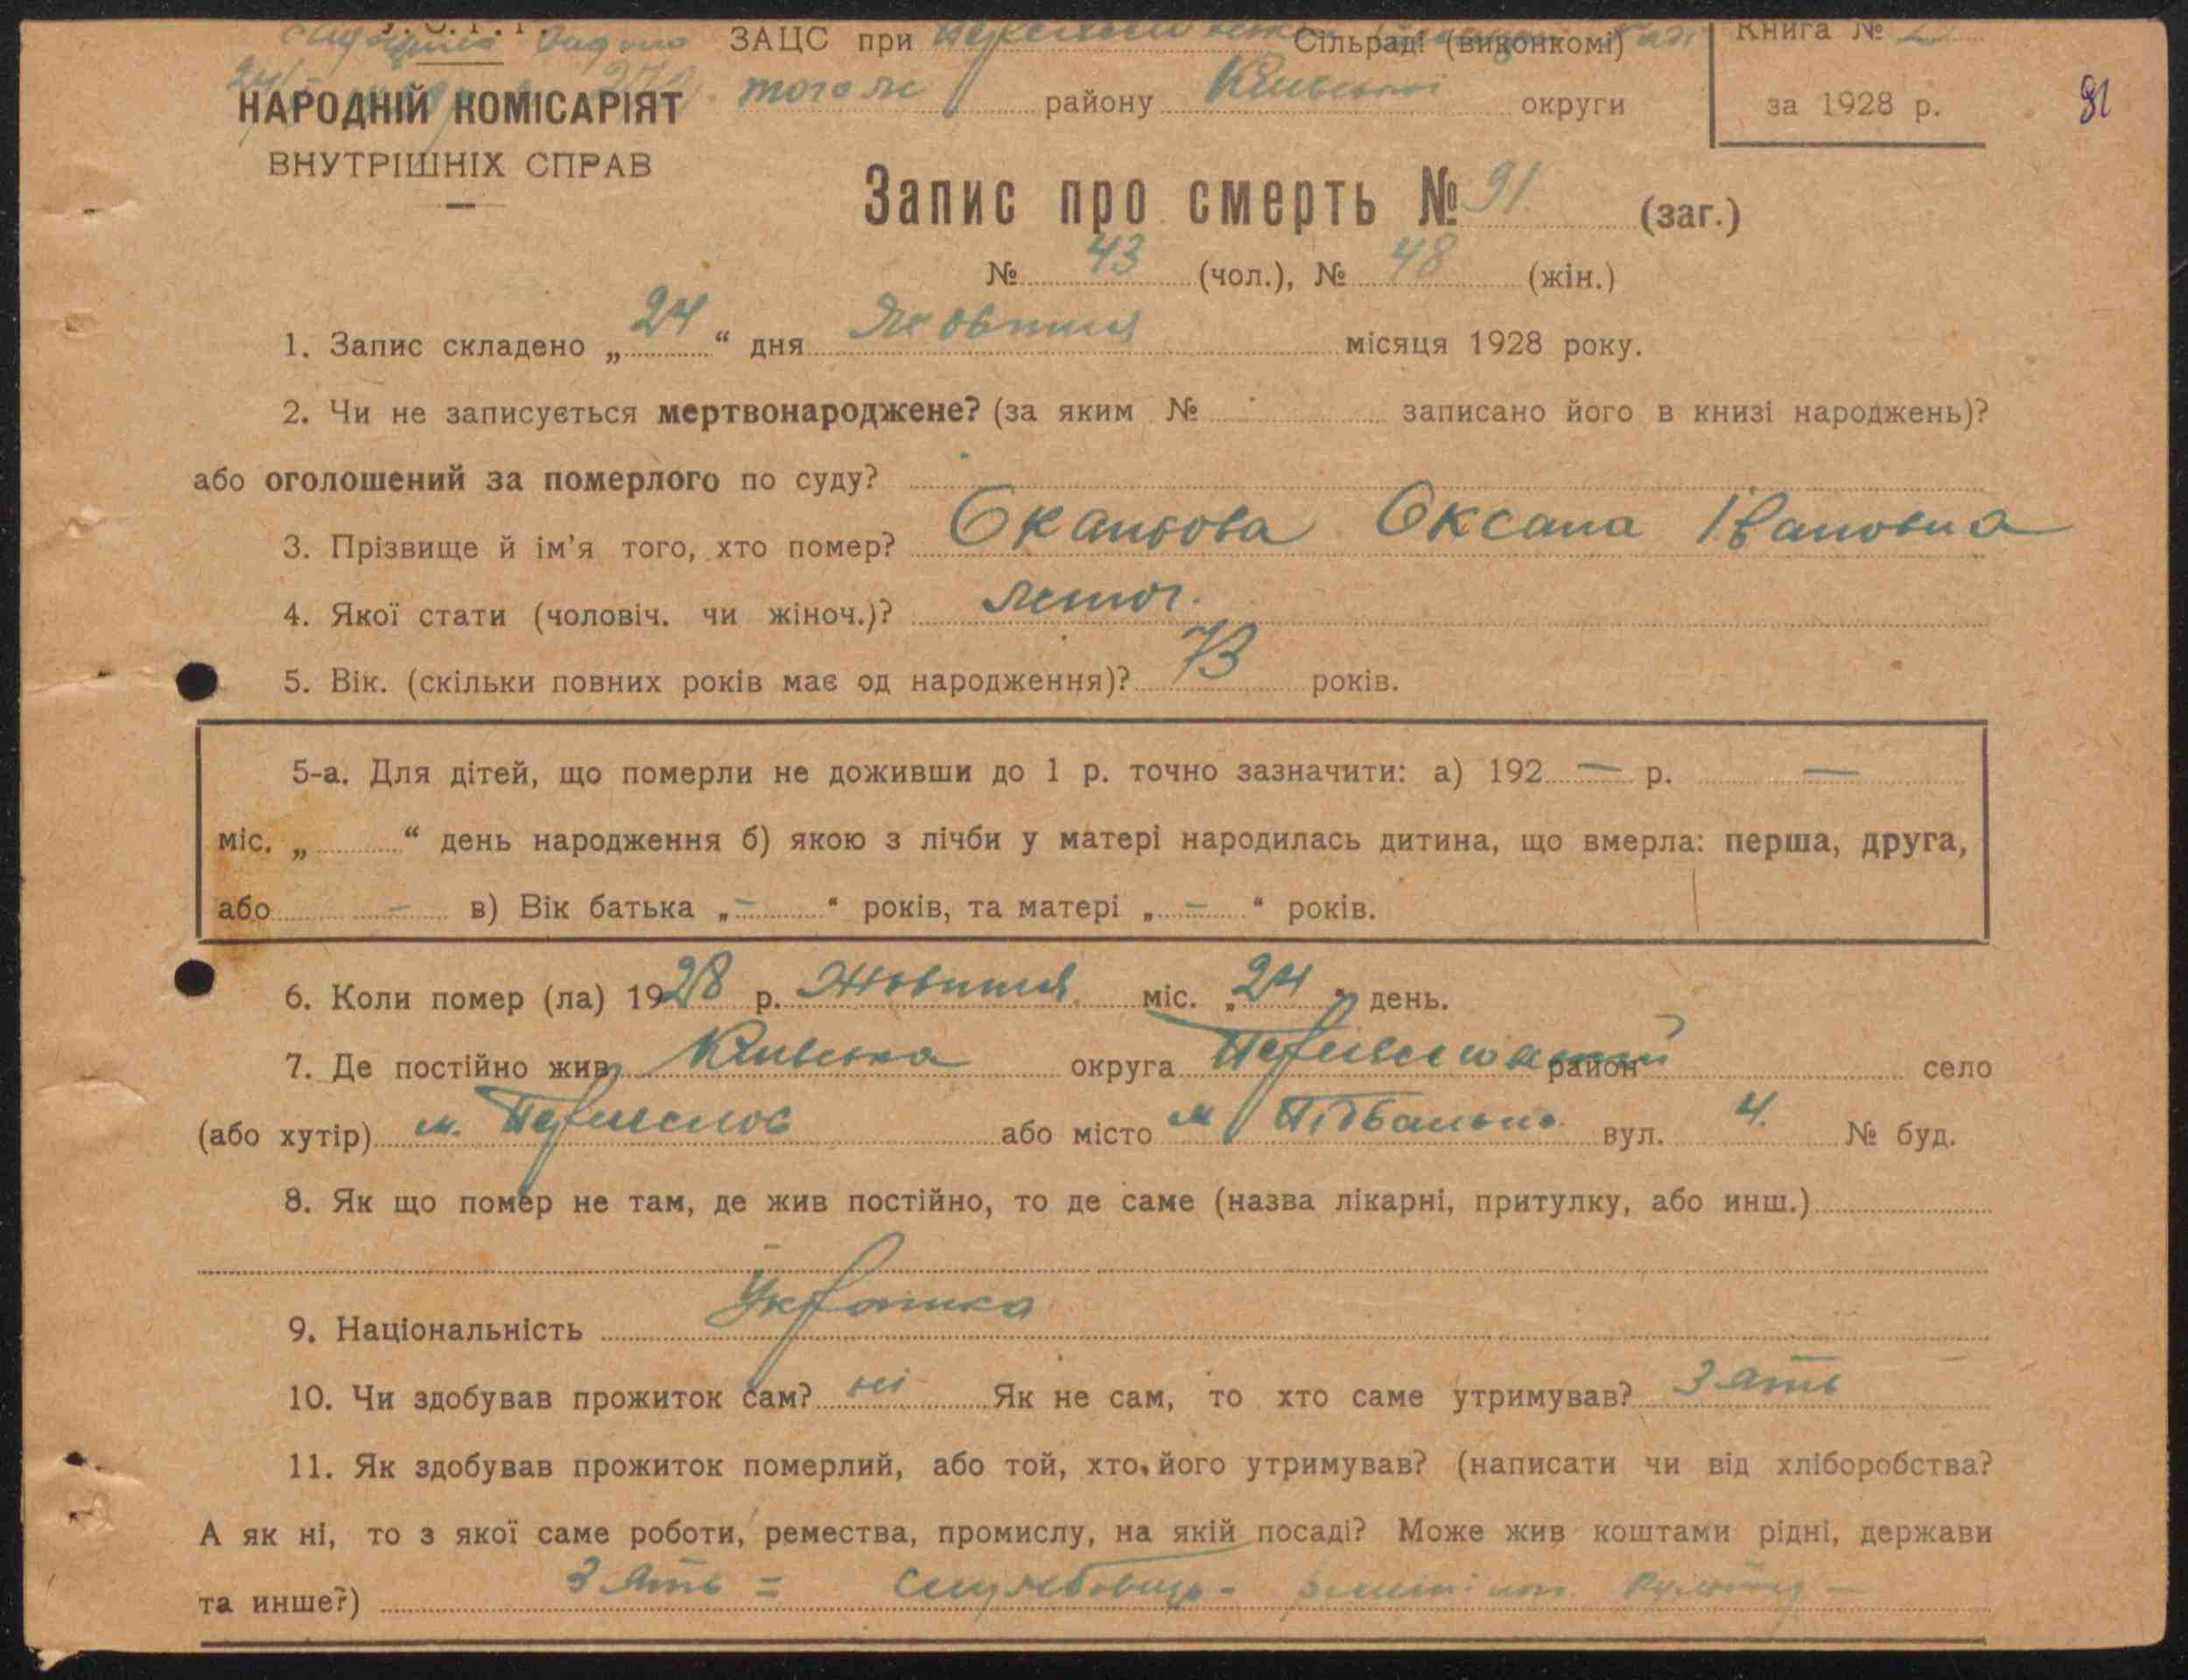 У.С.Р.Р.
ЗАЦС при Сільраді (виконкомі)
Книга №
НАРОДНІЙ КОМІСАРІЯТ
тогож району Київської округи
за 1928 р.
91
ВНУТРІШНІХ СПРАВ
Запис про смерть № 91 (заг.)
№ 43 (чол.), № 48 (жін.)
1. Запис складено „ 24 “ дня Жовтня місяця 1928 року.
2. Чи не записується мертвонароджене? (за яким № записано його в книзі народжень)?
або оголошений за померлого по суду?
3. Прізвище й ім'я того, хто помер? Оксана Івановна
4. Якої стати (чоловіч. чи жіноч.)? жіноч.
5. Вік. (скільки повних років має од народження)? 73 років.
5-а. Для дітей, що померли не доживши до 1 р. точно зазначити: а) 192 — р. —
міс. „ “ день народження б) якою з лічби у матері народилась дитина, що вмерла: перша, друга,
або - в) Вік батька „ - “ років, та матері „ - “ років.
6. Коли помер (ла) 1928 р. Жовтня міс. „ 24 “ день.
7. Де постійно жив Київська округа район село
(або хутір) м. або місто м Підвальна вул. 4. № буд.
8. Як що помер не там, де жив постійно, то де саме (назва лікарні, притулку, або инш.)
9. Національність Українка
10. Чи здобував прожиток сам? ні Як не сам, то хто саме утримував? Зять
11. Як здобував прожиток померлий, або той, хто його утримував? (написати чи від хліборобства?
А як ні, то з якої саме роботи, ремества, промислу, на якій посаді? Може жив коштами рідні, держави
та инше?) Зять = Службовець -